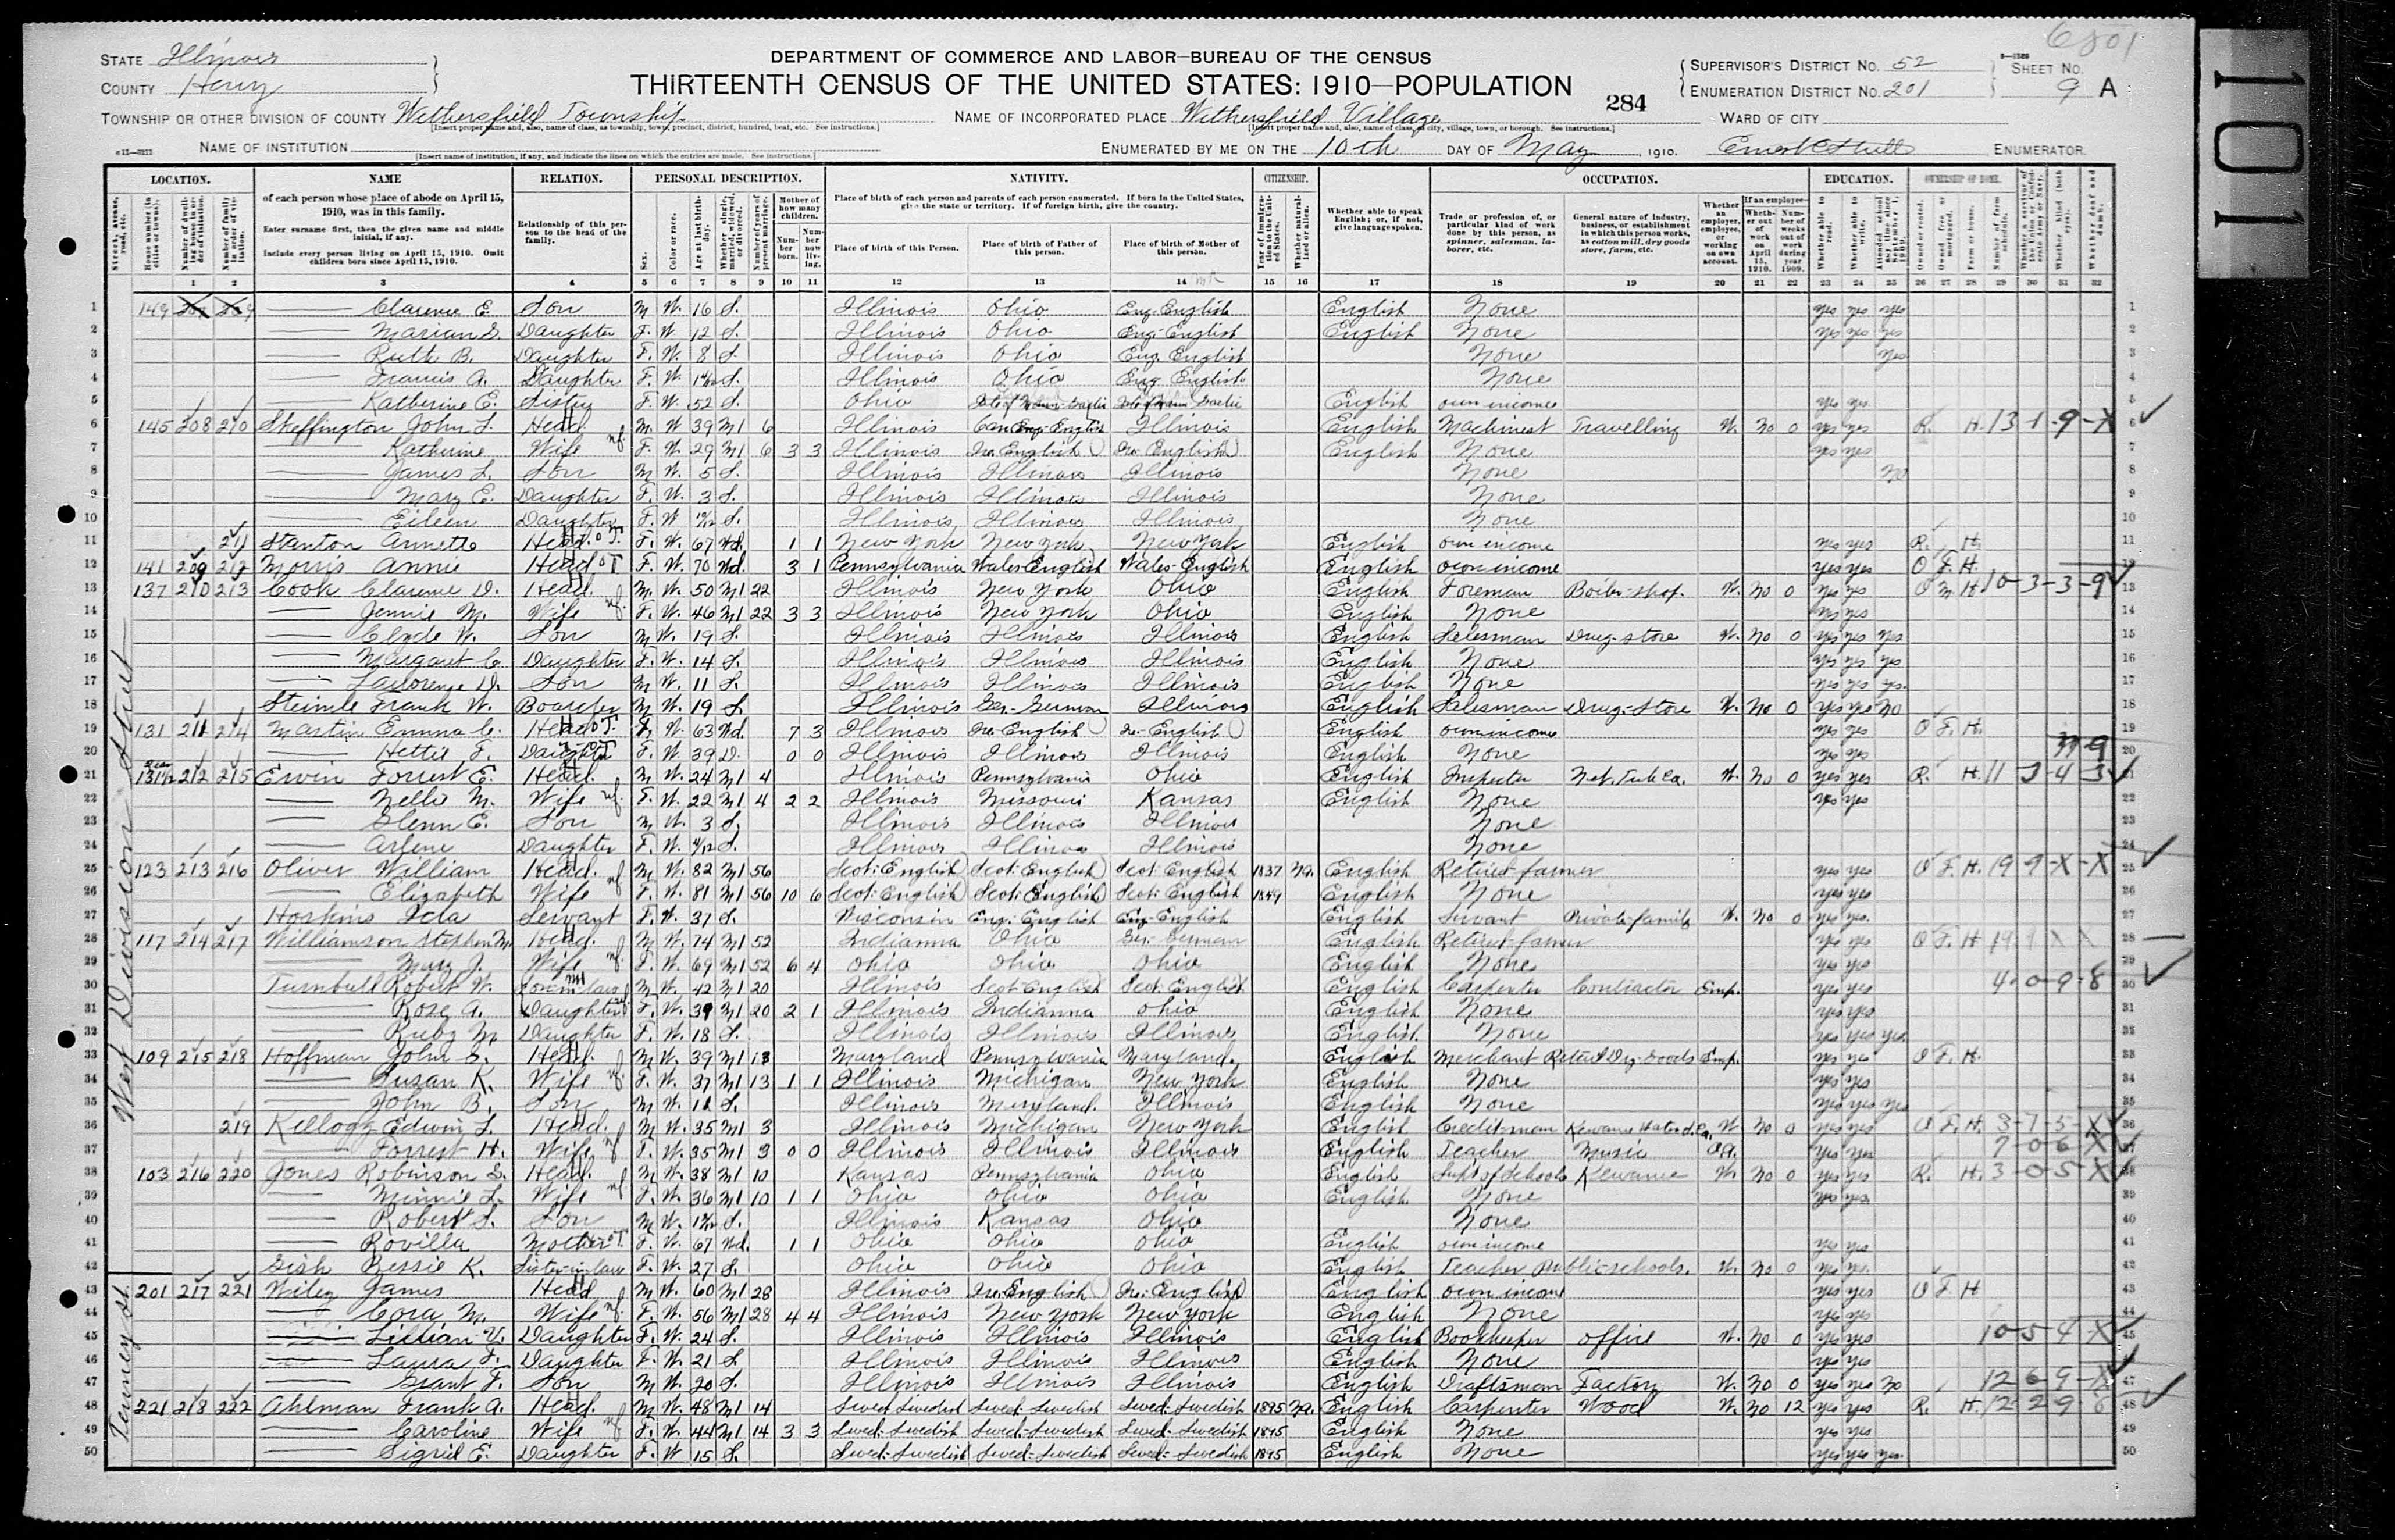 6801
STATE Illinois
COUNTY Henry
DEPARTMENT OF COMMERCE AND LABOR—BUREAU OF THE CENSUS
THIRTEENTH CENSUS OF THE UNITED STATES: 1910—POPULATION
284
SUPERVISOR'S DISTRICT NO. 52
ENUMERATION DISTRICT NO. 201
SHEET NO. 9 A
TOWNSHIP OR OTHER DIVISION OF COUNTY Wethersfield Township
NAME OF INCORPORATED PLACE Wethersfield Village
WARD OF CITY
NAME OF INSTITUTION
ENUMERATED BY ME ON THE 10th DAY OF May, 1910. ENUMERATOR
LOCATION. NAME RELATION. PERSONAL DESCRIPTION. NATIVITY. CITIZENSHIP. OCCUPATION. EDUCATION. OWNERSHIP OF HOME.
of each person whose place of abode on April 15, 1910, was in this family.
Enter surname first, then the given name and middle initial, if any.
Include every person living on April 15, 1910. Omit children born since April 15, 1910.
Relationship of this person to the head of the family.
Place of birth of each person and parents of each person enumerated. If born in the United States, give the state or territory. If of foreign birth, give the country.
Place of birth of this Person. Place of birth of Father of this person. Place of birth of Mother of this person.
Whether able to speak English; or, if not, give language spoken.
Trade or profession of, or particular kind of work done by this person, as spinner, salesman, laborer, etc.
General nature of industry, business, or establishment in which this person works, as cotton mill, dry goods store, farm, etc.
Whether an employer, employee, or working on own account.
1 2 3 4 5 6 7 8 9 10 11 12 13 14 15 16 17 18 19 20 21 22 23 24 25 26 27 28 29 30 31 32
West Division Street
1 149 Clarence E. Son M W. 16 S. Illinois Ohio Eng. English English None yes yes yes
2 Marian S. Daughter F. W. 12 S. Illinois Ohio Eng. English English None yes yes yes
3 Ruth B. Daughter F. W. 8 S. Illinois Ohio Eng. English None yes
4 Francis A. Daughter F. W. S. Illinois Ohio Eng. English None
5 Katherine E. Sister F. W. 52 S. Ohio English own income yes yes
6 145 208 210 Skeffington John L. Head M. W. 39 M1 6 Illinois Illinois English Machinest Travelling W. no 0 yes yes R. H. 13-1-9-X
7 Katherine Wife F. W. 29 M1 6 3 3 Illinois Ire. English Ire. English English None yes yes
8 James L. Son M W. 5 S. Illinois Illinois Illinois None no
9 Mary E. Daughter F. W. 3 S. Illinois Illinois Illinois None
10 Eileen Daughter F. W S. Illinois Illinois Illinois None
11 211 Stanton Annette Head F. W. 67 Wd. 1 1 New York New York New York English own income yes yes R. H.
12 141 209 212 Morris Annie Head F. W. 70 Wd. 3 1 Pennsylvania Wales-English Wales-English English own income yes yes O F. H.
13 137 210 213 Cook Clarence D. Head. M. W. 50 M1 22 Illinois New York Ohio English Foreman Boiler-shop. W. no 0 yes yes O M H 10-3-3-9
14 Jennie M. Wife F. W. 46 M1 22 3 3 Illinois New York Ohio English None yes yes
15 Clyde W. Son M W. 19 S. Illinois Illinois Illinois English Salesman Drug-store W. no 0 yes yes yes
16 Margaret C. Daughter F. W. 14 S. Illinois Illinois Illinois English None yes yes yes
17 Lawrence D. Son M W. 11 S. Illinois Illinois Illinois English None yes yes yes
18 Steimle Frank W. Boarder M W. 19 S. Illinois Ger.-German Illinois English Salesman Drug-Store W. No 0 yes yes no
19 131 211 214 Martin Emma C. Head F. W. 63 Wd. 7 3 Illinois Ire-English Ire-English English own income yes yes O F. H.
20 Hettie F. Daughter F. W. 39 D. 0 0 Illinois Illinois Illinois English None yes yes
21 131½ 212 215 Erwin Forrest E. Head. M W. 24 M1 4 Illinois Pennsylvania Ohio English Inspector Nat. Tube Co. W. no 0 yes yes R. H. 11 3-4 3
22 Nelle M. Wife F. W. 22 M1 4 2 2 Illinois Missouri Kansas English None yes yes
23 Glenn E. Son M W. 3 S. Illinois Illinois Illinois None
24 Arlene Daughter F. W. S. Illinois Illinois Illinois None
25 123 213 216 Oliver William Head. M W. 82 M1 56 Scot: English Scot: English Scot: English 1837 Na. English Retired farmer yes yes O F. H. 19 9-X-X
26 Elizabeth Wife F. W. 81 M1 56 10 6 Scot: English Scot: English Scot: English 1849 English None yes yes
27 Hoskins Ida Servant F. W. 37 S. Wisconsin Eng: English Eng-English English Servant Private-family W. No 0 yes yes
28 117 214 217 Williamson Stephen M. Head. M W. 74 M1 52 Indianna Ohio Ger. German English Retired-farmer yes yes O F. H 19 9 X X
29 Mary J. Wife F. W. 69 M1 52 6 4 Ohio Ohio Ohio English None yes yes
30 Turnbull Robert W. Son-in-law M W. 42 M1 20 Illinois Scot-English Scot-English English Carpenter Contractor Emp. yes yes 4-0-9-8
31 Rose A. Daughter F. W. 39 M1 20 2 1 Illinois Indianna Ohio English None yes yes
32 Ruby M Daughter F. W. 18 S. Illinois Illinois Illinois English. None yes yes yes
33 109 215 218 Hoffman John S. Head. M W. 39 M1 13 Maryland Pennsylvania Maryland. English Merchant Retail Dry-Goods Emp. yes yes O F. H.
34 Susan K. Wife F. W. 37 M1 13 1 1 Illinois Michigan New York English None yes yes
35 John B. Son M W. S. Illinois Maryland. Illinois English None yes yes yes
36 219 Kellogg Edwin L. Head. M W. 35 M1 3 Illinois Michigan New York English Credit-man W no 0 yes yes O F. H. 3-7-5-X
37 Forrest H. Wife F. W. 35 M1 3 0 0 Illinois Illinois Illinois English Teacher Music OA. yes yes 7-0-6-X
38 103 216 220 Jones Robinson G. Head. M W. 38 M1 10 Kansas Pennsylvania Ohio English Supt of Schools Kewanee W. no 0 yes yes R. H. 3-0-5 X
39 Minnie L. Wife F. W. 36 M1 10 1 1 Ohio Ohio Ohio English None yes yes
40 Robert S. Son M W. S. Illinois Kansas Ohio None
41 Rovilla Mother F. W. 67 Wd. 1 1 Ohio Ohio Ohio English own income yes yes
42 Gish Bessie K. Sister-in-law F. W. 27 S. Ohio Ohio Ohio English Teacher Public-schools. W. no 0 yes yes
Tenney St.
43 201 217 221 Wiley James Head M W. 60 M1 28 Illinois Ire. English Ire. English English own income yes yes O F H
44 Cora M. Wife F. W. 56 M1 28 4 4 Illinois New York New York English None yes yes
45 Lillian V. Daughter F. W. 24 S. Illinois Illinois Illinois English Bookkeeper office W. No 0 yes yes 10-5-4-X
46 Laura F. Daughter F. W. 21 S. Illinois Illinois Illinois English None yes yes
47 Grant F. Son M W. 20 S. Illinois Illinois Illinois English Draftsman Factory W. No 0 yes yes no 12-6-9-X
48 221 218 222 Ahlman Frank A. Head. M W. 48 M1 14 Swed: Swedish Swed: Swedish Swed: Swedish 1895 Na. English Carpenter Wood W. no 12 yes yes R. H. 12-2-9-8
49 Caroline Wife F. W 44 M1 14 3 3 Swed: Swedish Swed: Swedish Swed: Swedish 1895 English None yes yes
50 Sigrid E. Daughter F. W 15 S. Swed: Swedish Swed: Swedish Swed: Swedish 1895 English None yes yes yes
1011